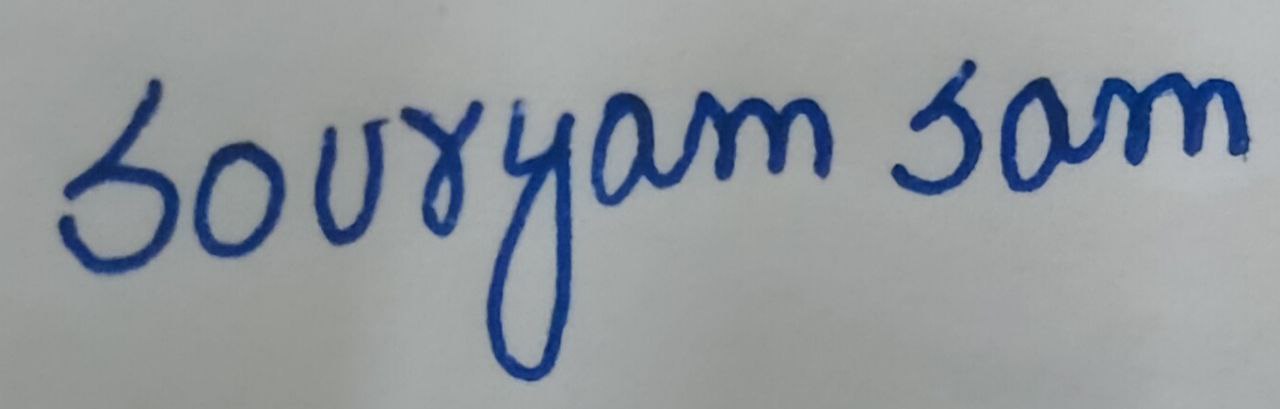 souryam sam